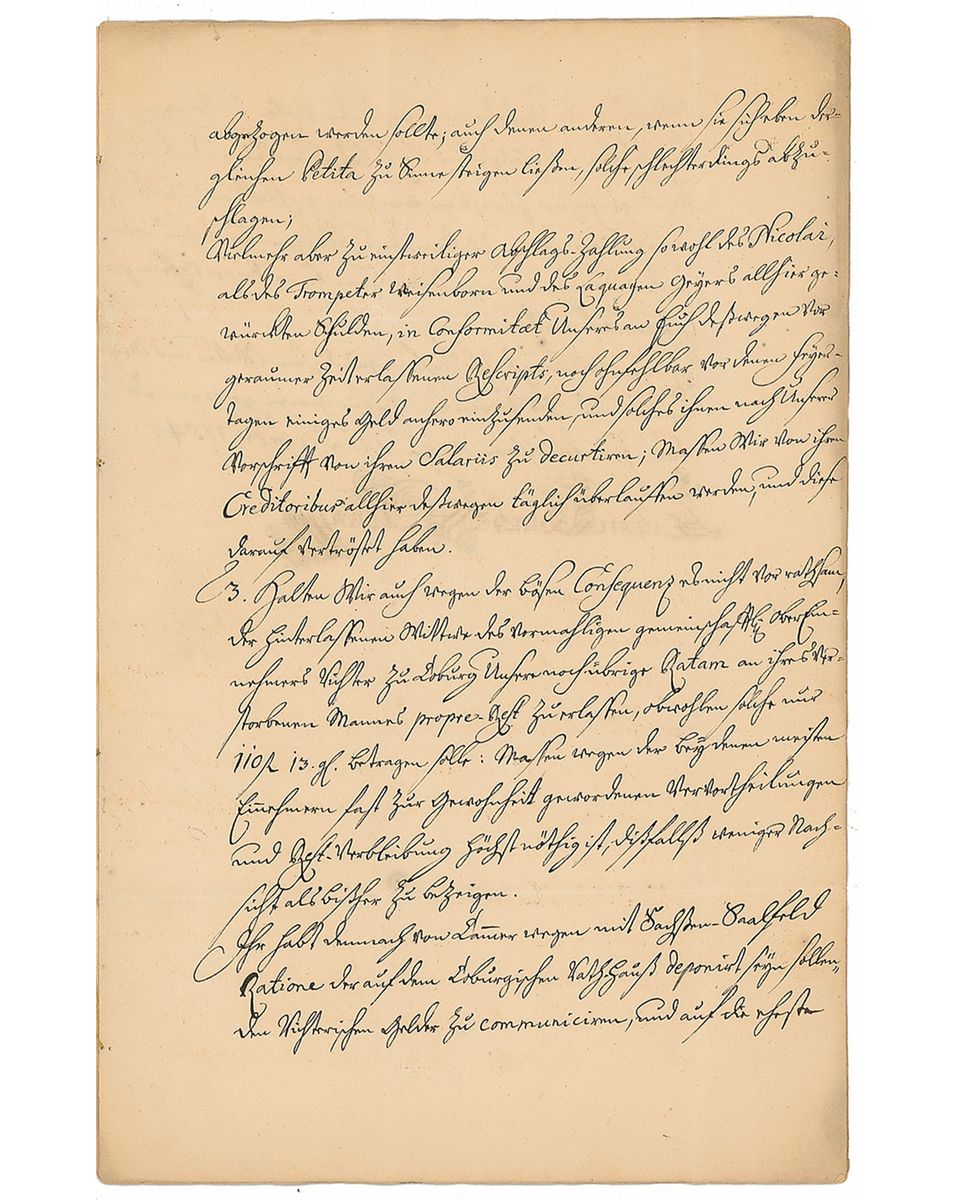 abgezogen werden sollte; auch denen anderen, wenn sie sich eben der-
gleichen Petita zu Sinne steigen ließen, solche schlechterdings abzu-
schlagen;
Vielmehr aber zu einstweiliger Abschlags-Zahlung sowohl des Nicolai,
als des Trompeter Weisenborn und des Laquayen Geyers allhier ge-
würckten Schulden, in Conformitaet Unseres an Euch deßwegen vor
geraumer Zeit erlassenen Rescripts, noch ohnfehlbar vor denen Feyer-
tagen einiges Geld anhero einzusenden, und solches ihnen nach Unserer
Vorschrifft von ihren Salariis zu decurtiren; Massen Wir von ihren
Creditoribus allhier deßwegen täglich überlauffen werden, und diese
darauf vertröstet haben.
3. Halten Wir auch wegen der bösen Consequenz es nicht vor rathsam,
der hinterlassenen Wittwe des vormahligen gemeinschafftl. OberEin-
nehmers Richter zu Coburg Unsere noch übrige Ratam an ihres ver-
storbenen Mannes propre-Rest zu erlassen, obwohlen solche nur
110 fl. 13. gl. betragen solle: Massen wegen der bey denen meisten
Einnehmern fast zur Gewohnheit gewordenen Vervortheilungen
und Rest-Verbleibung höchst nöthig ist, dißfallß weniger Nach-
sicht als bißher zu bezeigen.
Ihr habt demnach von Cammer wegen mit Sachßen-Saalfeld
Ratione der auf dem Coburgischen Rathhauß deponirt seyn sollen-
den Richterischen Gelder zu communiciren, und auf die eheste